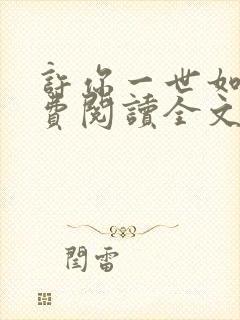 許你一世如
費閱讀全文
閏雷